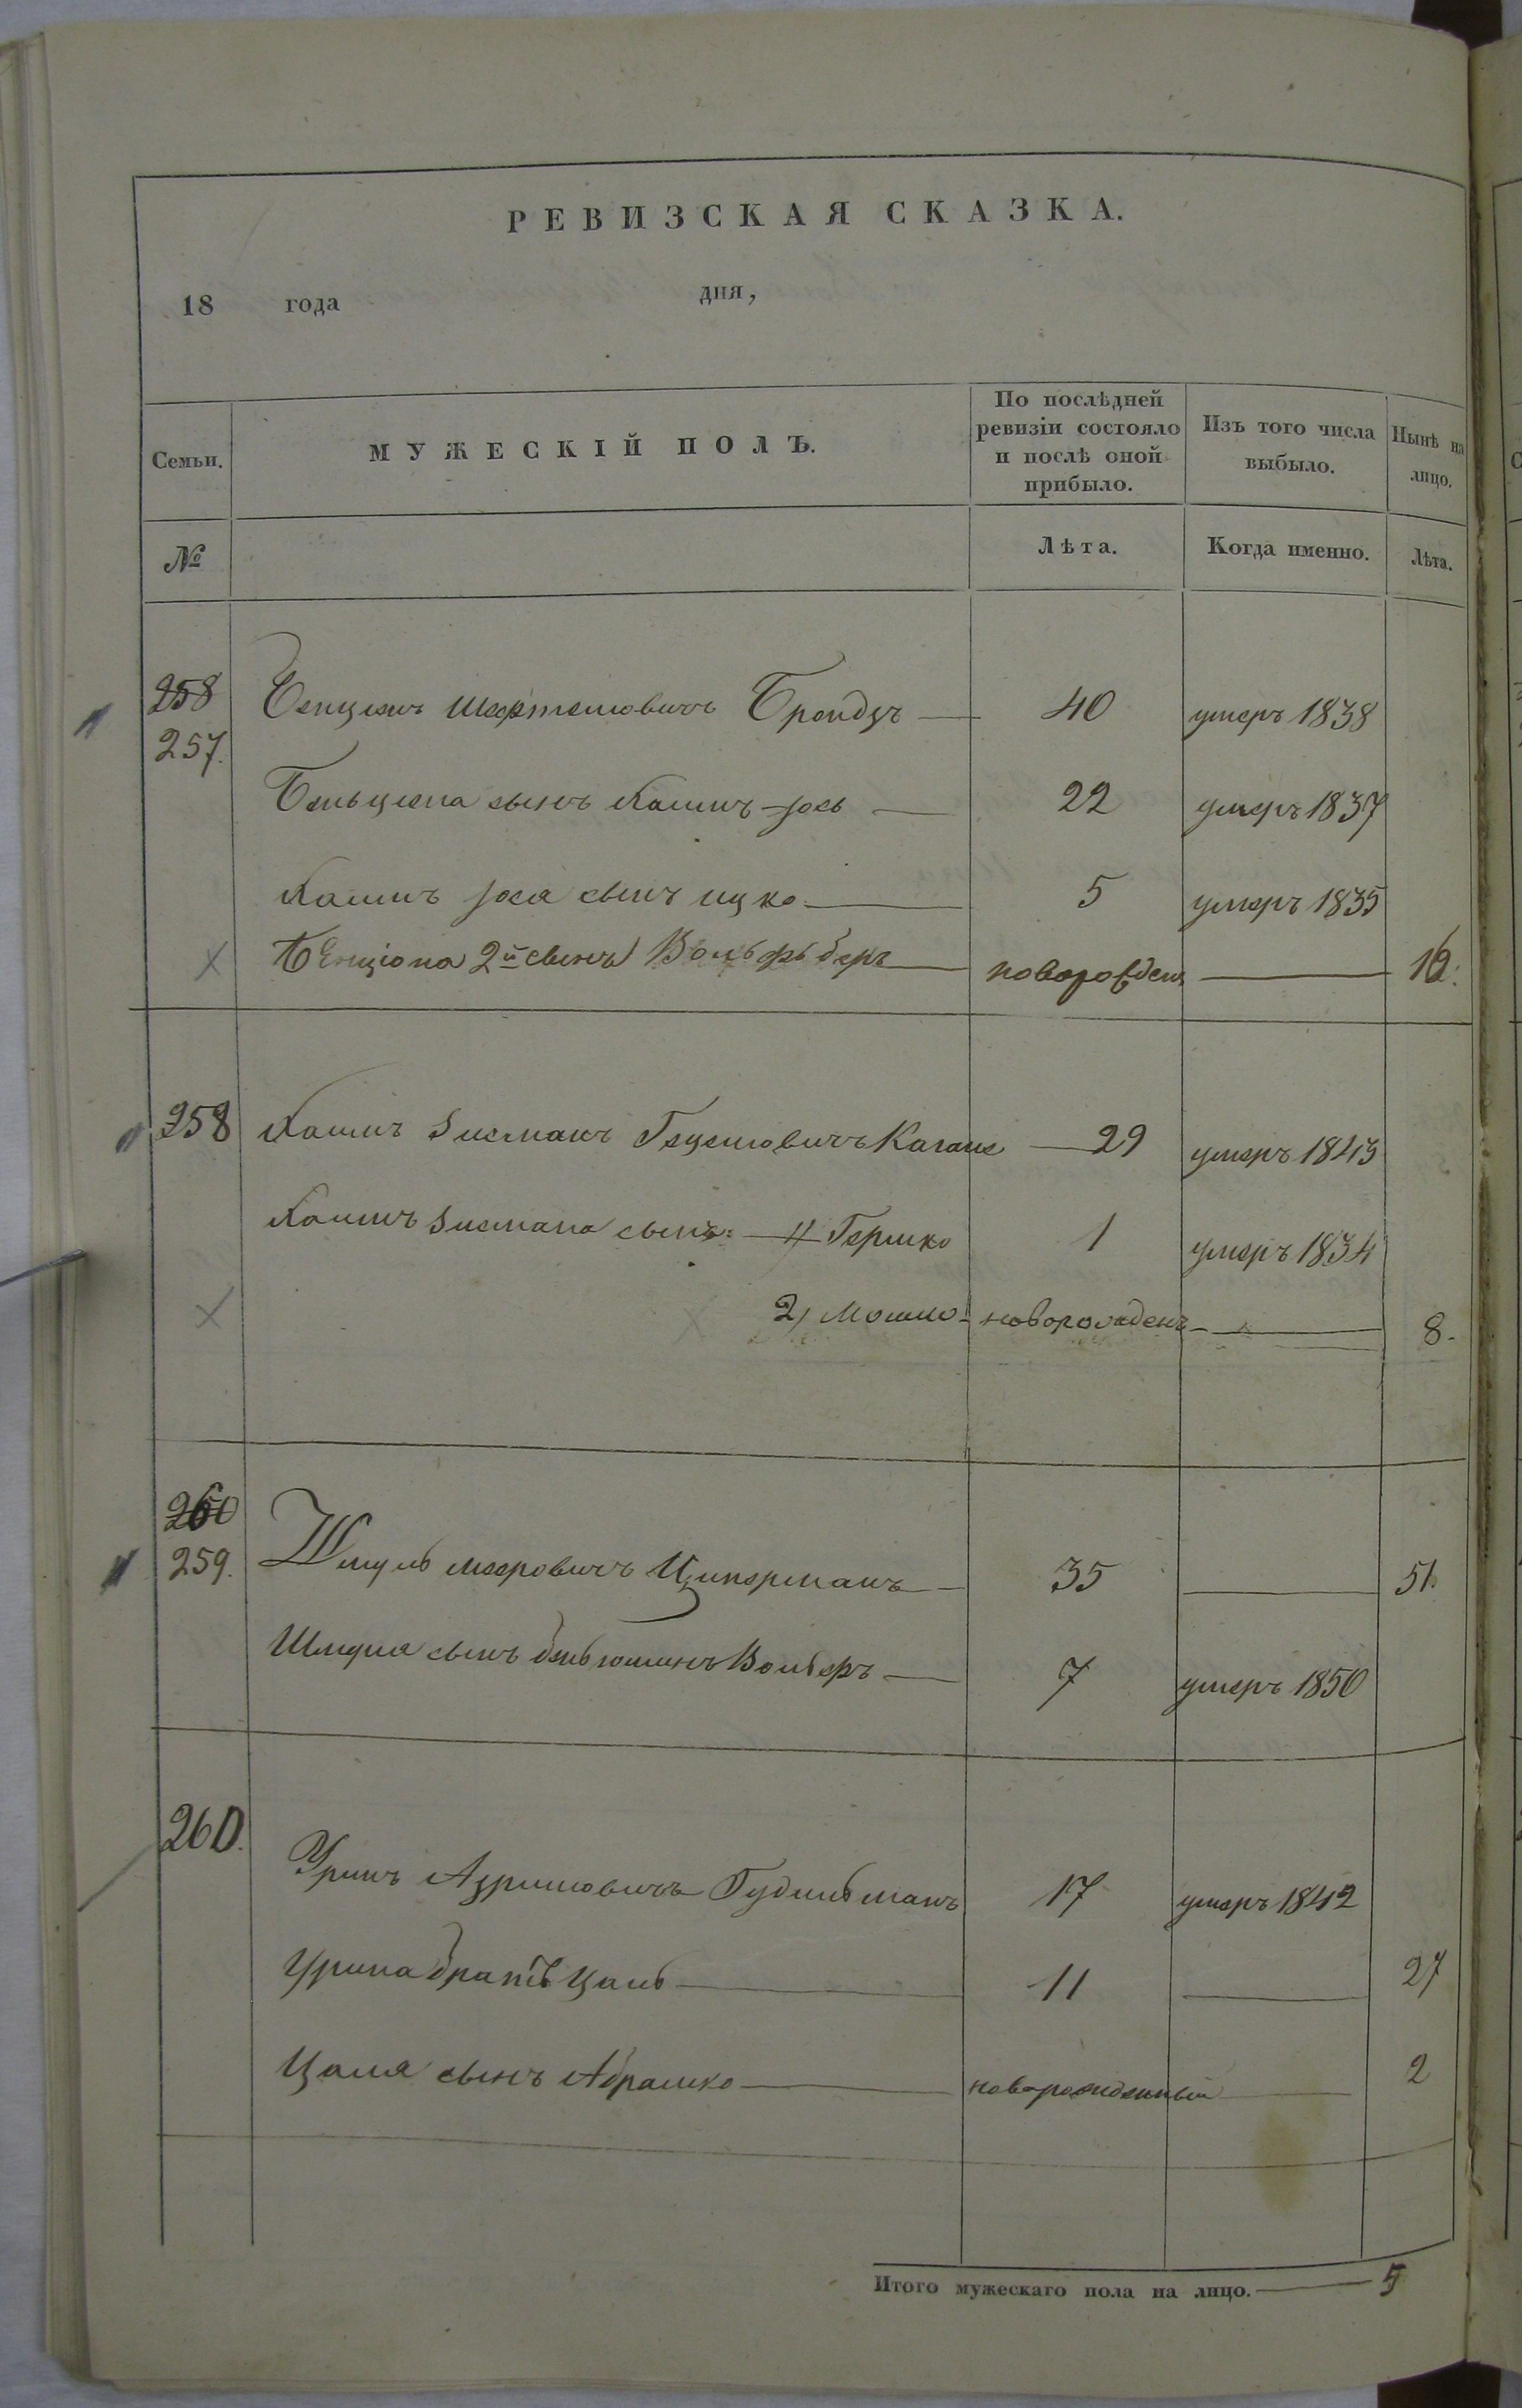 РЕВИЗСКАЯ СКАЗКА.
18 года дня,
Семьи. МУЖЕСКІЙ ПОЛЪ. По послѣдней ревизіи состояло и послѣ оной прибыло. Изъ того числа выбыло. Нынѣ на лицо.
№ Лѣта. Когда именно. Лѣта.
258 Бенционъ Брондзъ 40 умеръ 1838
257.
Беньциона сынъ Хаимъ-Jось 22 умеръ 1837
Хаимъ Jося сынъ Ицко 5 умеръ 1835
Бенціона 2й сынъ Вольфъ беръ новорожден 16.
258 Хаимъ Зисманъ Гецеліовичъ Каганъ 29 умеръ 1843
Хаимъ Зисмана сынъ: 1, Гершко 1 умеръ 1834
2, Мошко новорожденъ 8.
260
259. Шмуль Мееровичъ Циперманъ 35 51.
Шмуля сынъ Беньюминъ Вольеръ 7 умеръ 1850
260. Уринъ Азриловичъ Гудильманъ 17 умеръ 1842
Урина братъ Цаль 11 27
Цаля сынъ Абрамко новорожденный 2
Итого мужескаго пола на лицо. 5